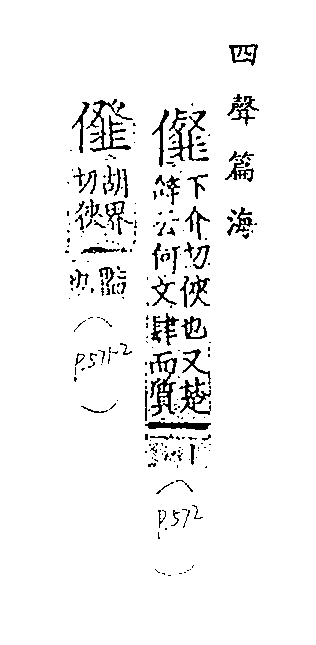 四聲篇海
下介切俠也又楚
辤云何文肆而質
(P.572
)
胡界
切狹
也
(P.571-2
)